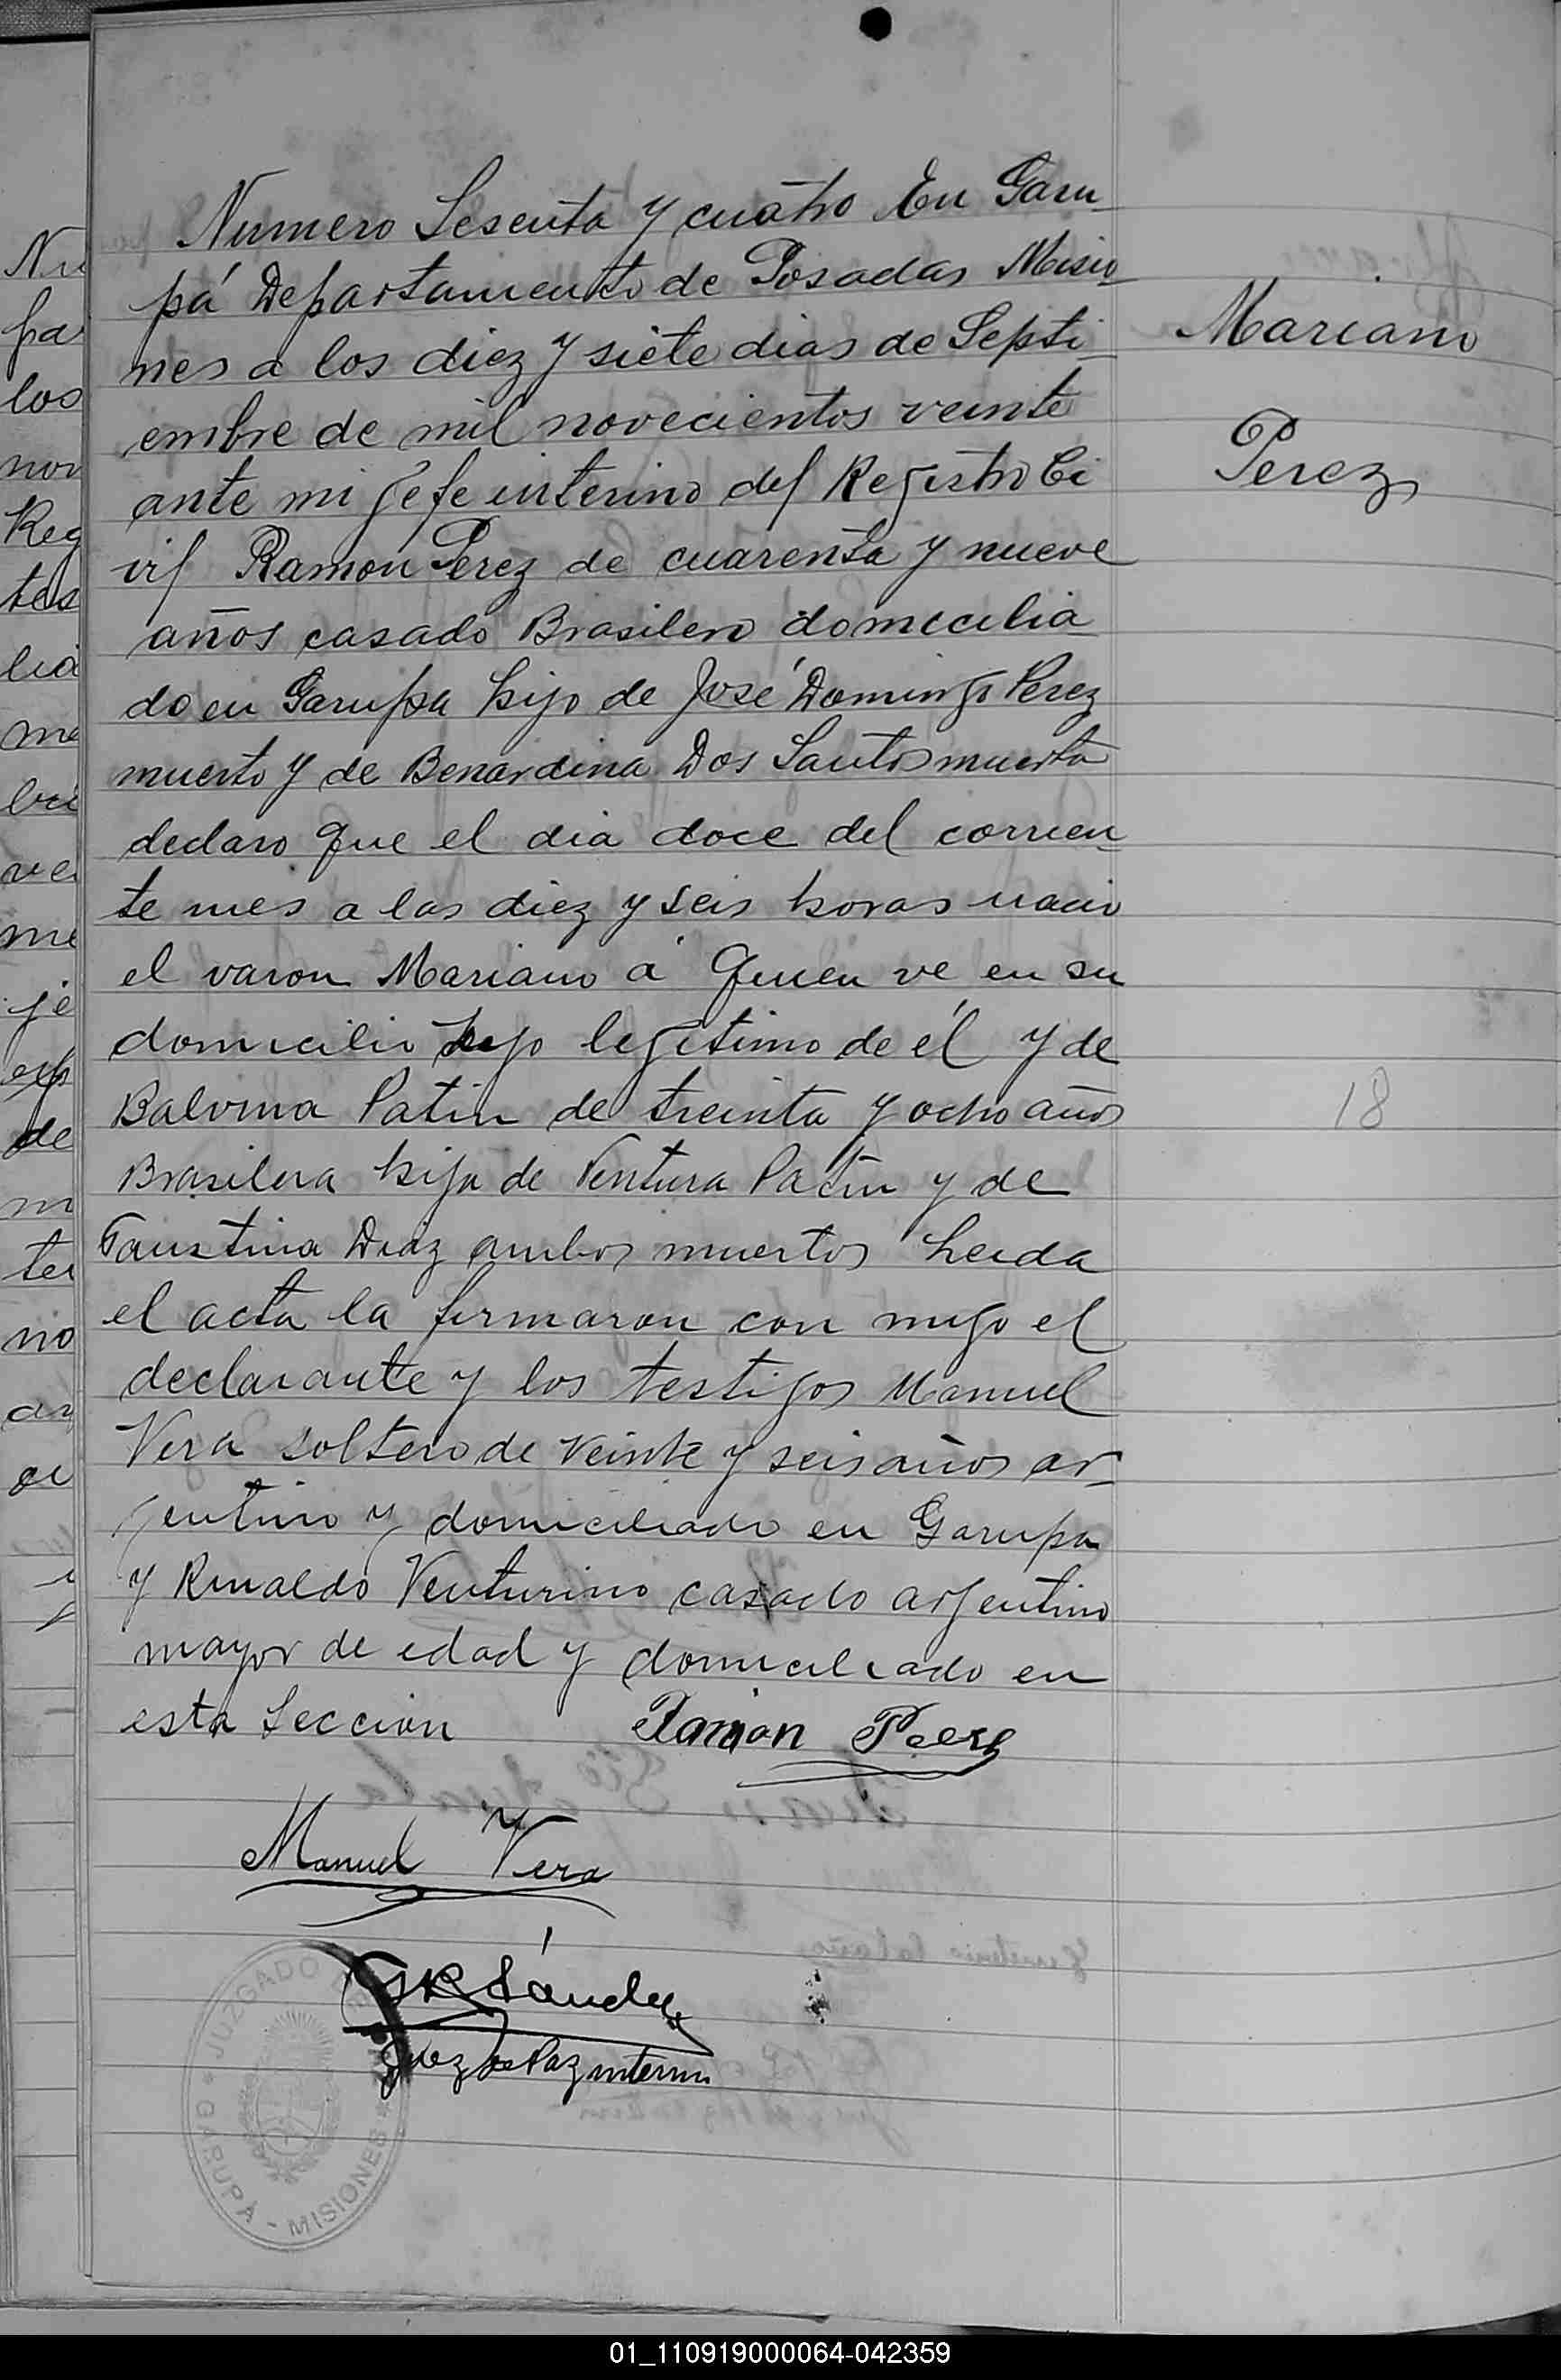 Numero Sesenta y cuatro En Garu-
pá Departamento de Posadas Misio-
nes a los diez y siete dias de Septi-
embre de mil novecientos veinte
ante mi jefe interino del Registro Ci
vil Ramon Perez de cuarenta y nueve
años casado Brasilero domicilia-
do en Garupa hijo de José Domingo Perez
muerto y de Benardina Dos Santos muerta
declaro que el dia doce del corrien-
te mes a las diez y seis horas nacio
el varon Mariano a quien ve en su
domicilio hijo legitimo de él y de
Balvina Patin de treinta y ocho años
Brasilera hija de Ventura Patin y de
Faustina Diaz ambos muertos Leida
el acta la firmaron con migo el
declarante y los testigos Manuel
Vera soltero de veinte y seis años ar-
gentino y domiciliado en Garupa
y Rinaldo Venturino casado argentino
mayor de edad y domiciliado en
esta Seccion Ramon Perez
Manuel Vera
Sánchez
Juez de Paz interino
JUZGADO
GARUPÁ - MISIONES
Mariano
Perez
18
Nu
pa
los
nov
Reg
tes
lia
me
ve
me
je
de
m
te
no
01_110919000064-042359